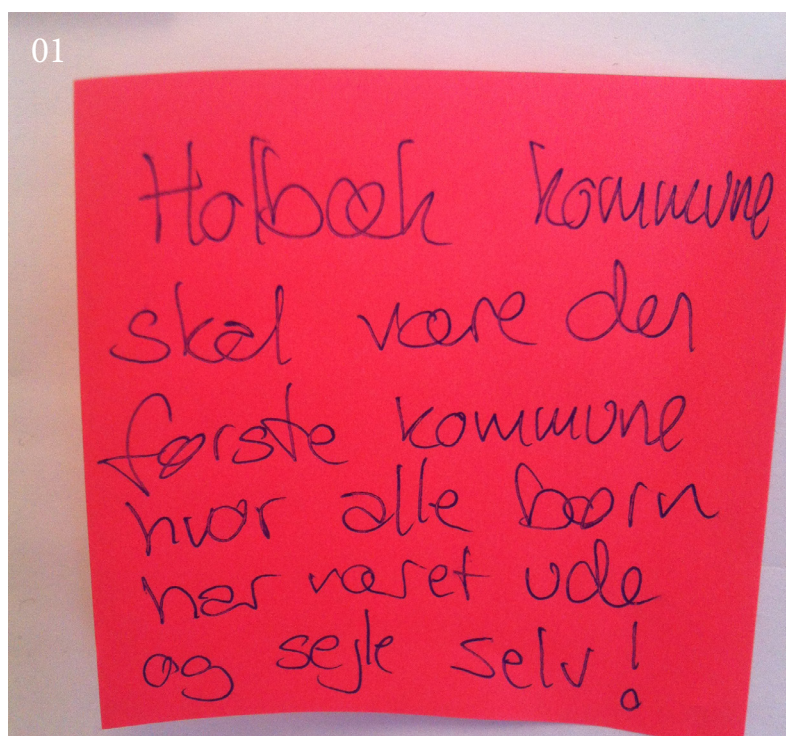 01
Holbæk kommune
skal være den
første kommune
hvor alle børn
har været ude
og sejle selv!